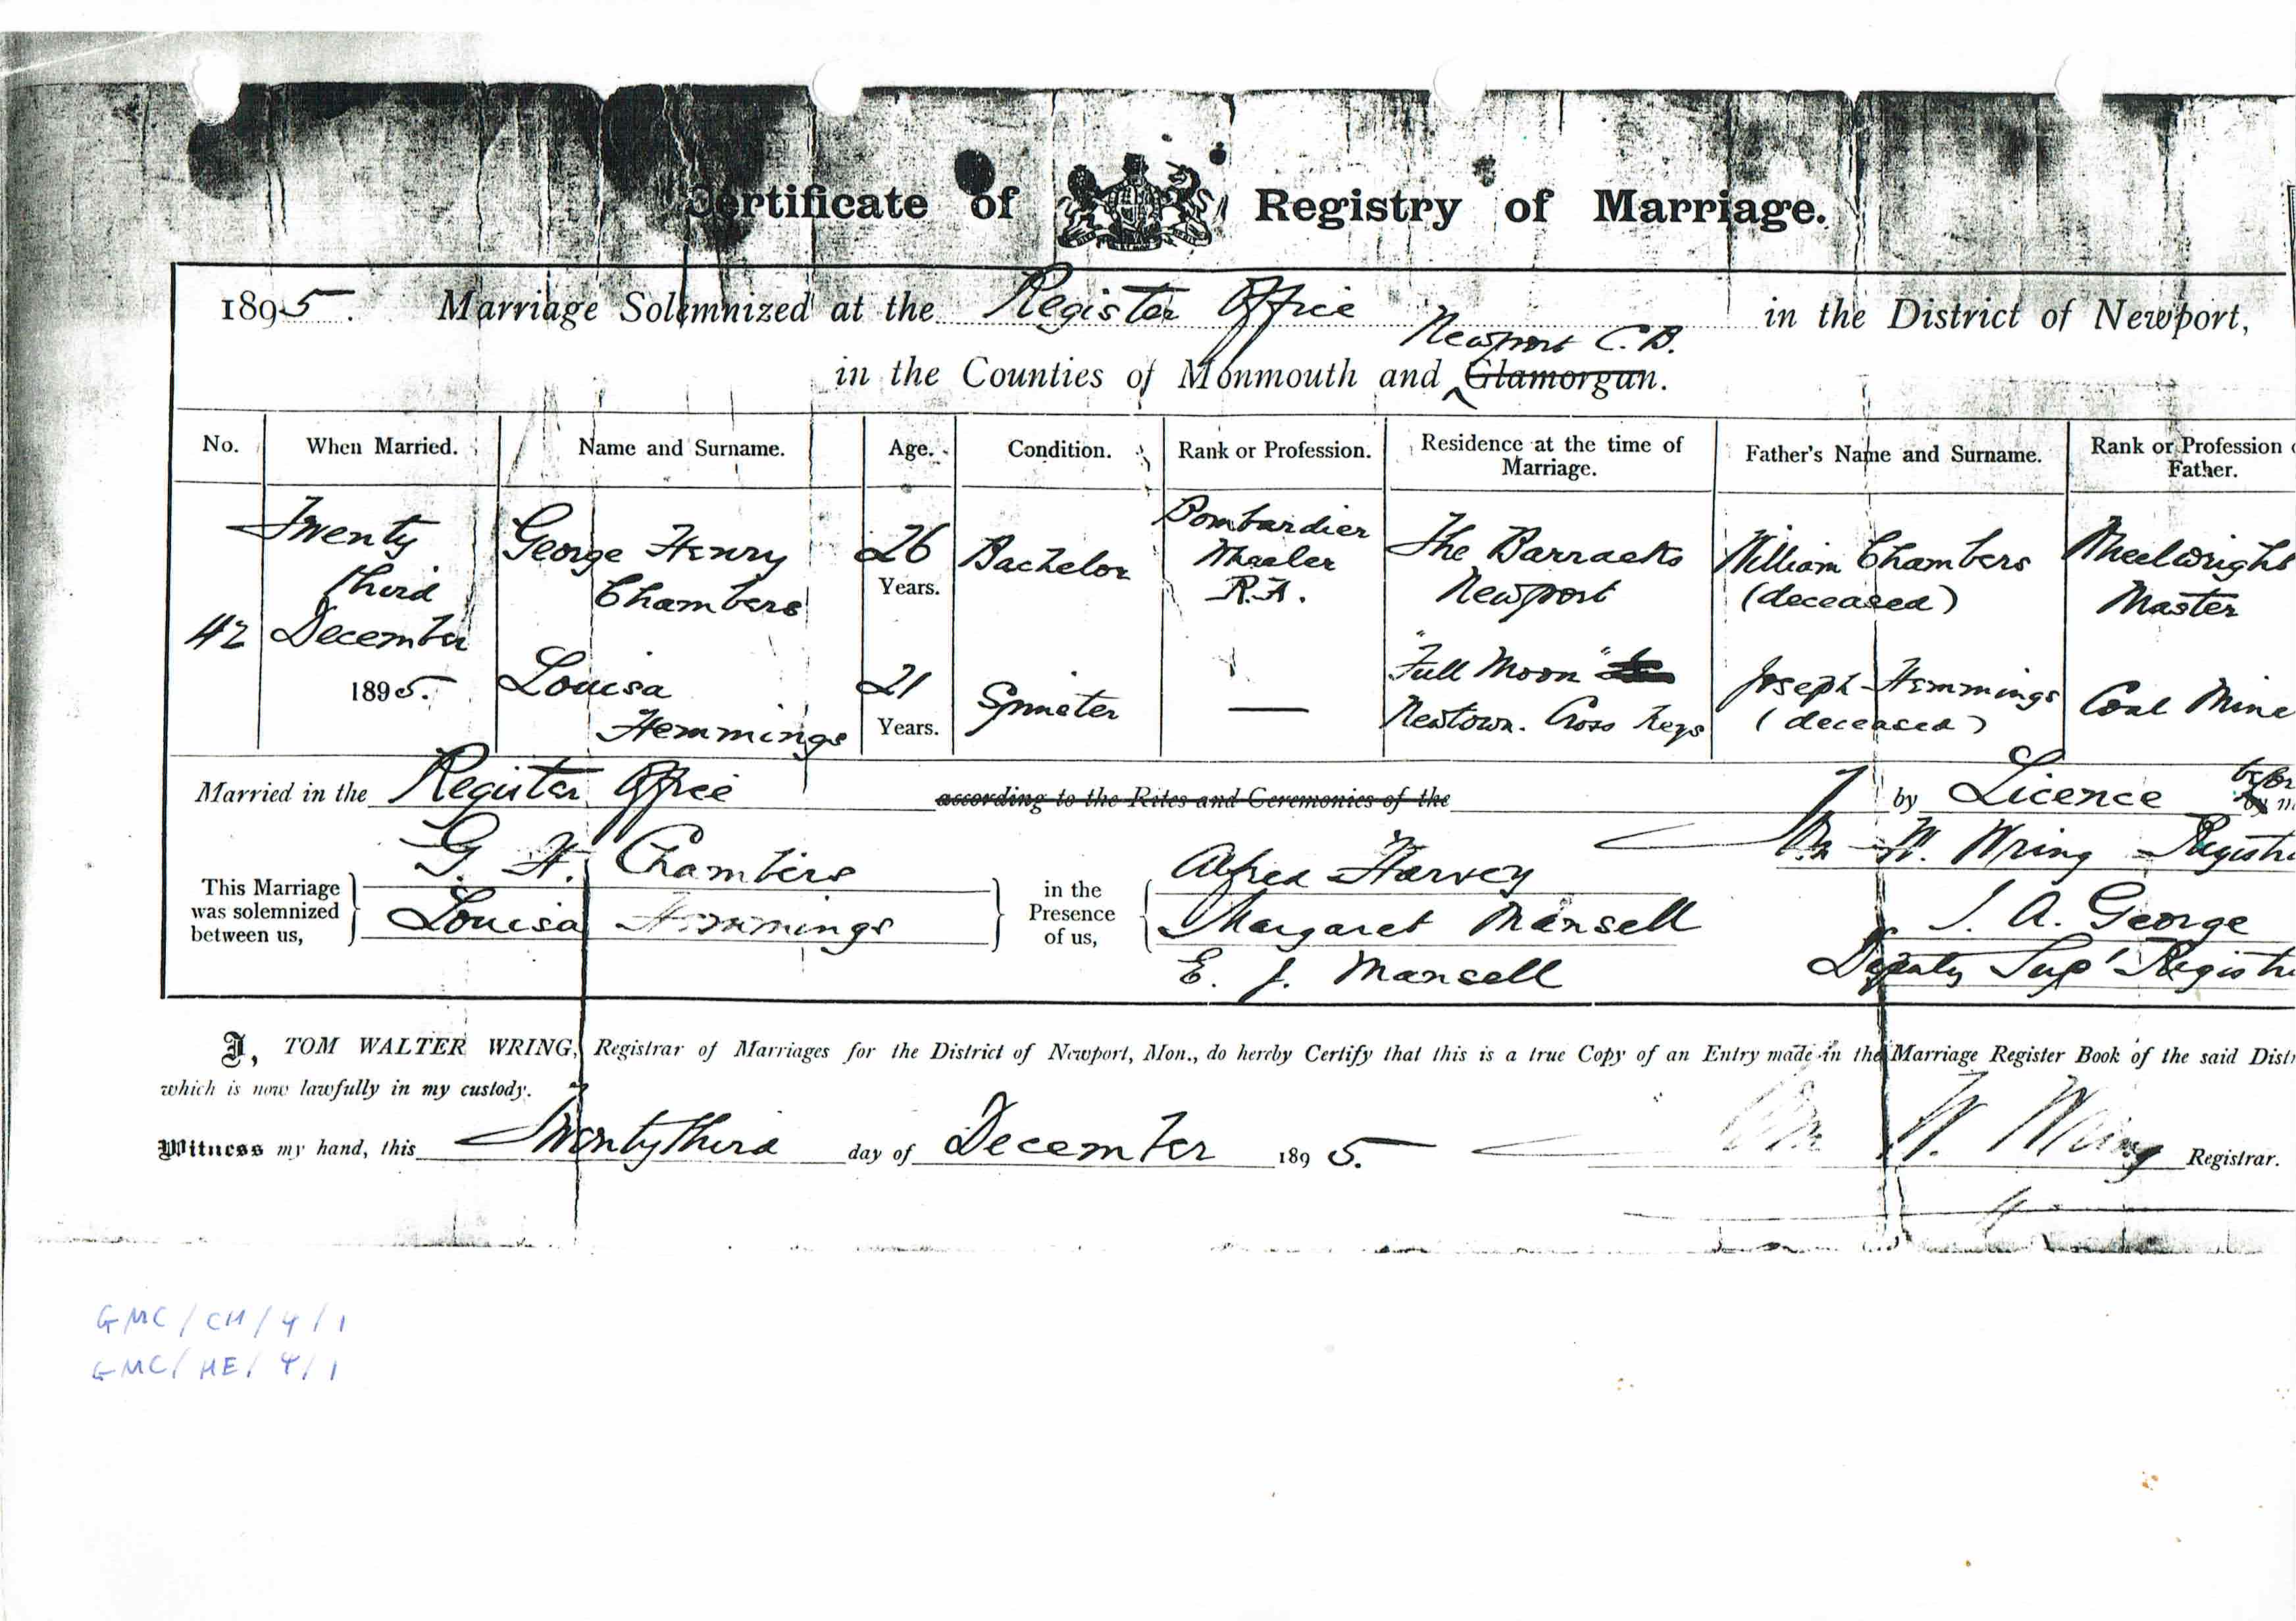 Certificate of Registry of Marriage.
1895. Marriage Solemnized at the Register Office in the District of Newport,
Newport C. B.
in the Counties of Monmouth and Glamorgan.
No. When Married. Name and Surname. Age. Condition. Rank or Profession. Residence at the time of Marriage. Father's Name and Surname. Rank or Profession
Father.
Twenty third December 1895. George Henry Chambers 26 Years. Bachelor Bombardier Wheeler R.A. The Barracks Newport William Chambers (deceased) Wheelwright Master
42 Louisa Hemmings 21 Years. Spinster — "Full Moon" Newtown. Cross Keys Joseph Hemmings (deceased) Coal Mine
Married in the Register Office according to the Rites and Ceremonies of the by Licence
This Marriage was solemnized between us, G. H. Chambers in the Presence of us, Alfred Harvey W. Wring
Louisa Hemmings Margaret Mansell J. A. George
E. J. Mansell Deputy Supt
I, TOM WALTER WRING, Registrar of Marriages for the District of Newport, Mon., do hereby Certify that this is a true Copy of an Entry made in the Marriage Register Book of the said
which is now lawfully in my custody.
Witness my hand, this Twenty third day of December 1895. W. Wring Registrar.
GMC/CH/4/1
GMC/HE/4/1